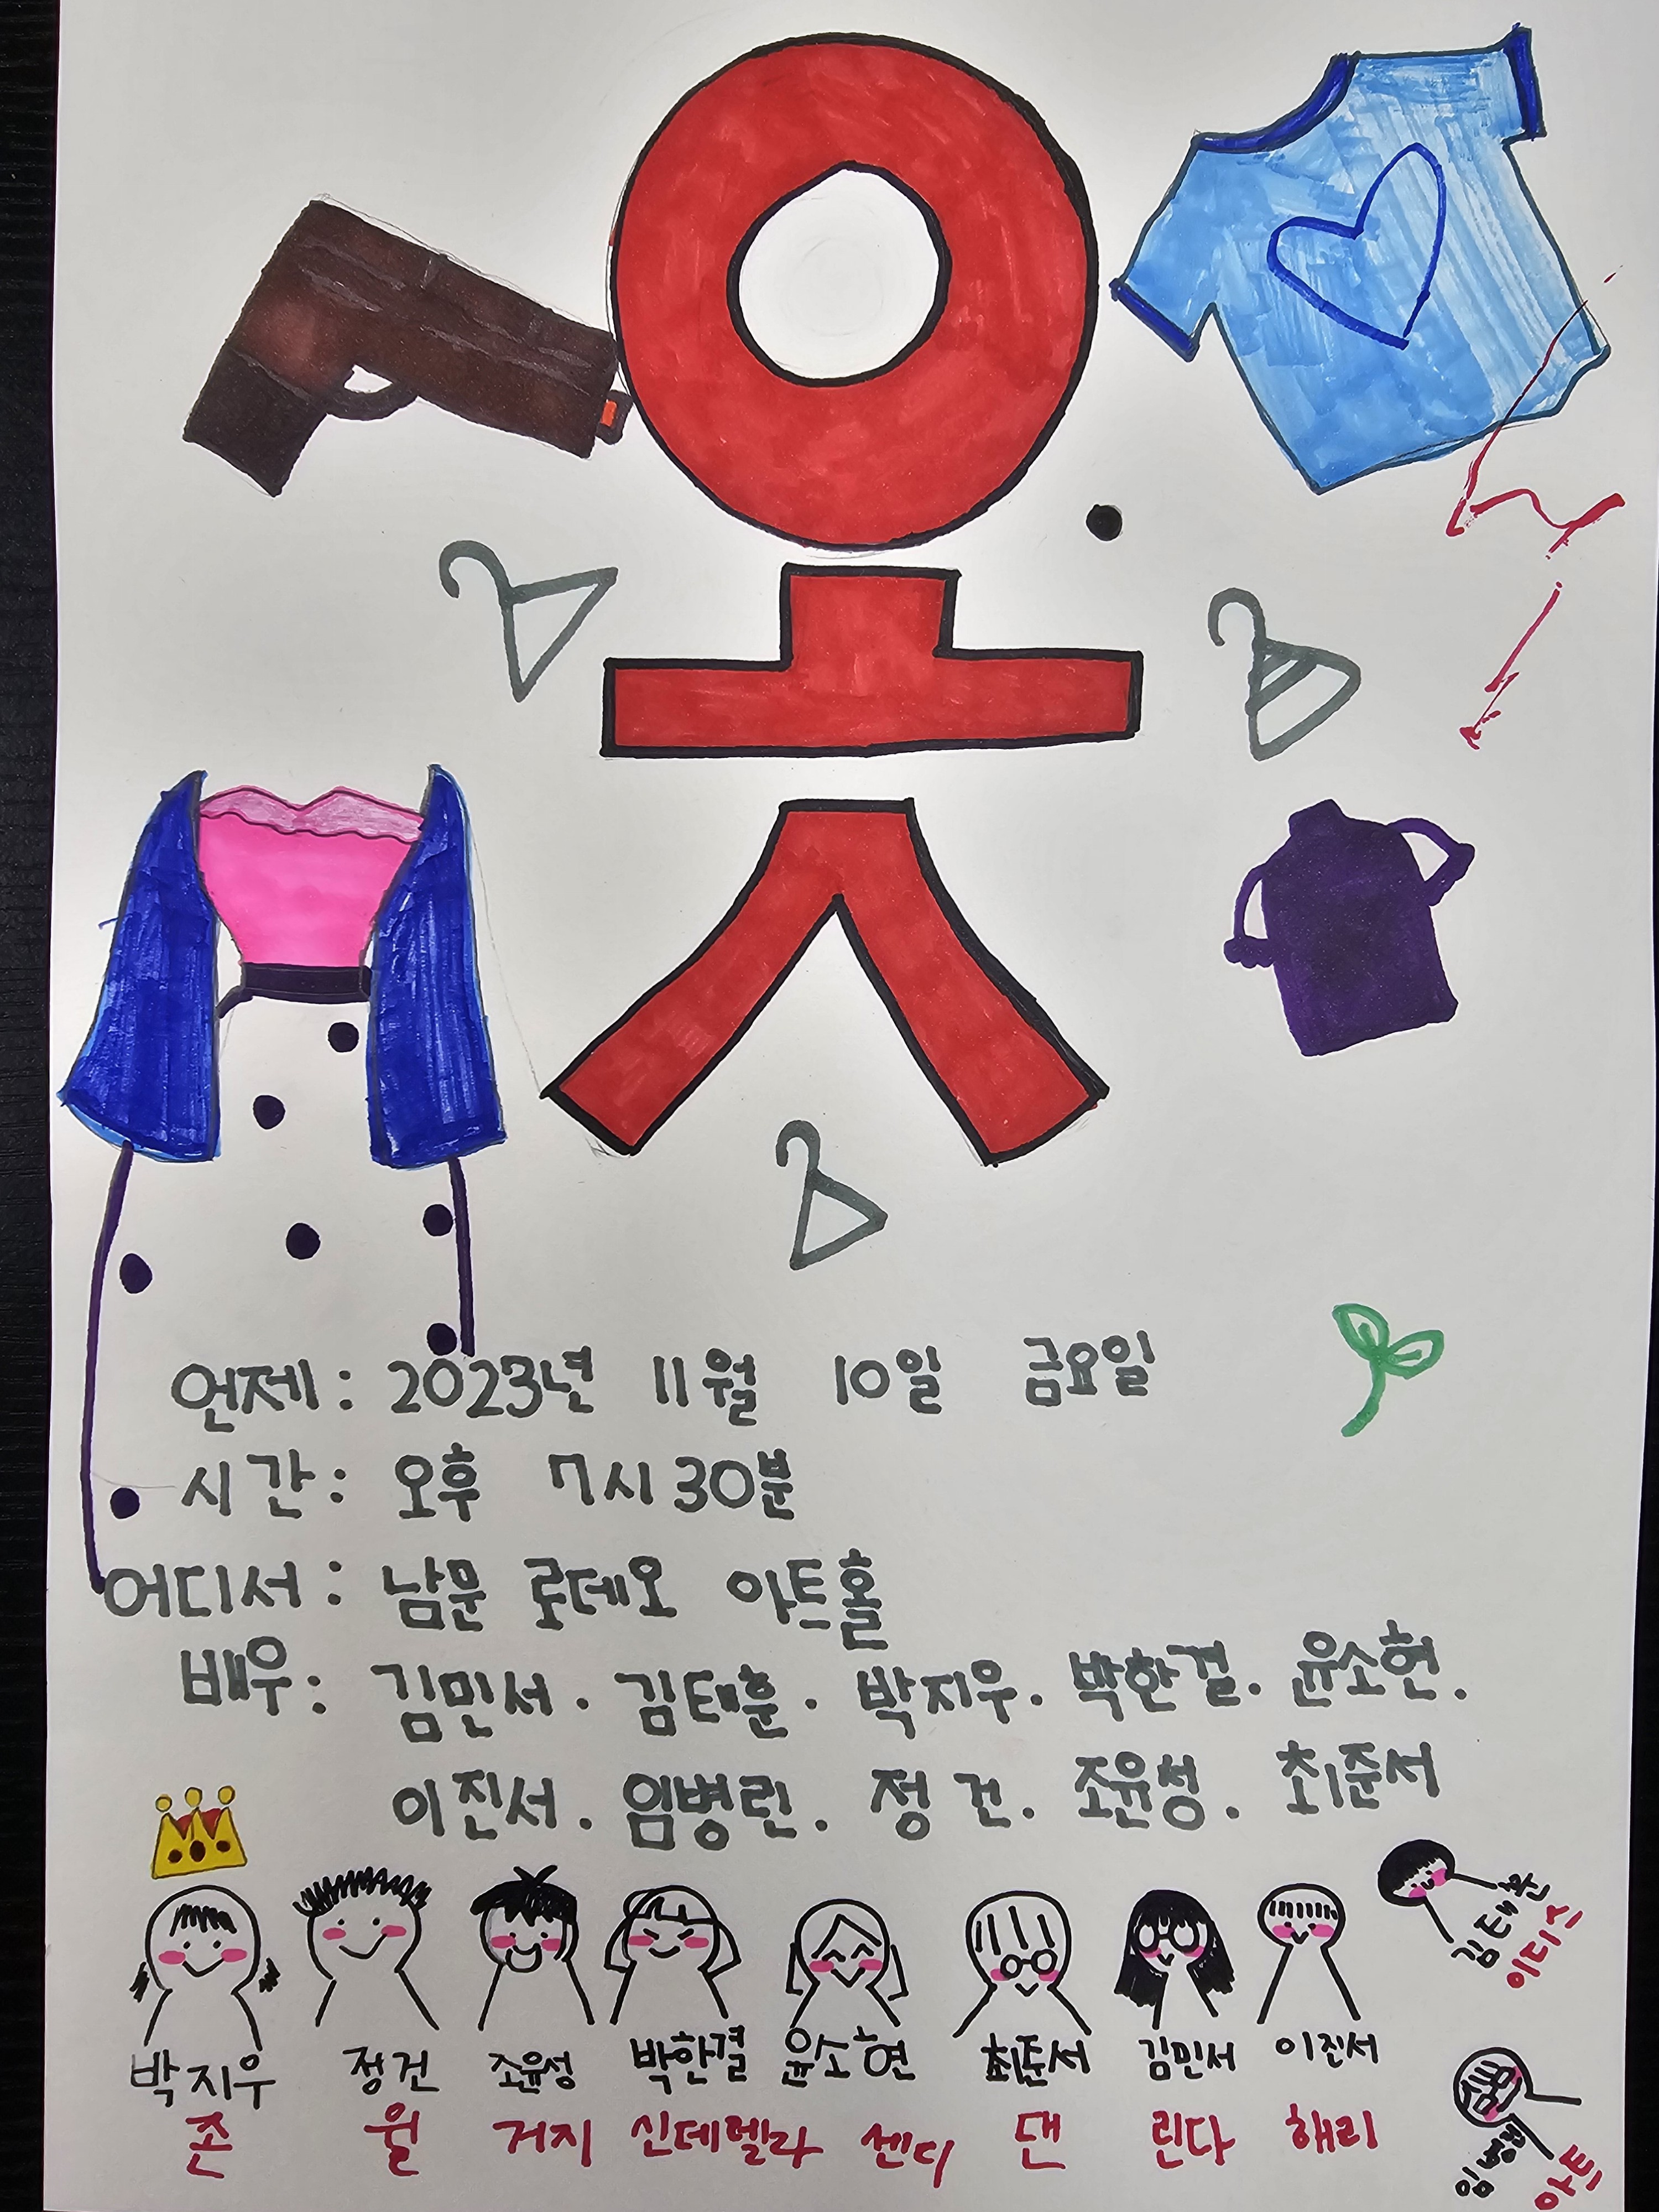 옷
언제: 2023년 11월 10일 금요일
시간: 오후 7시 30분
어디서: 남문 로데오 아트홀
배우: 김민서 · 김태훈 · 박지우. 박한결. 윤소현.
이진서. 임병린. 정건. 조윤성. 최준서
박지우 정건 조윤성 박한결 윤소현 최준서 김민서 이진서
존 월 거지 신데렐라 센디 댄 린다 해리
김태훈
이디스
임병린
아트